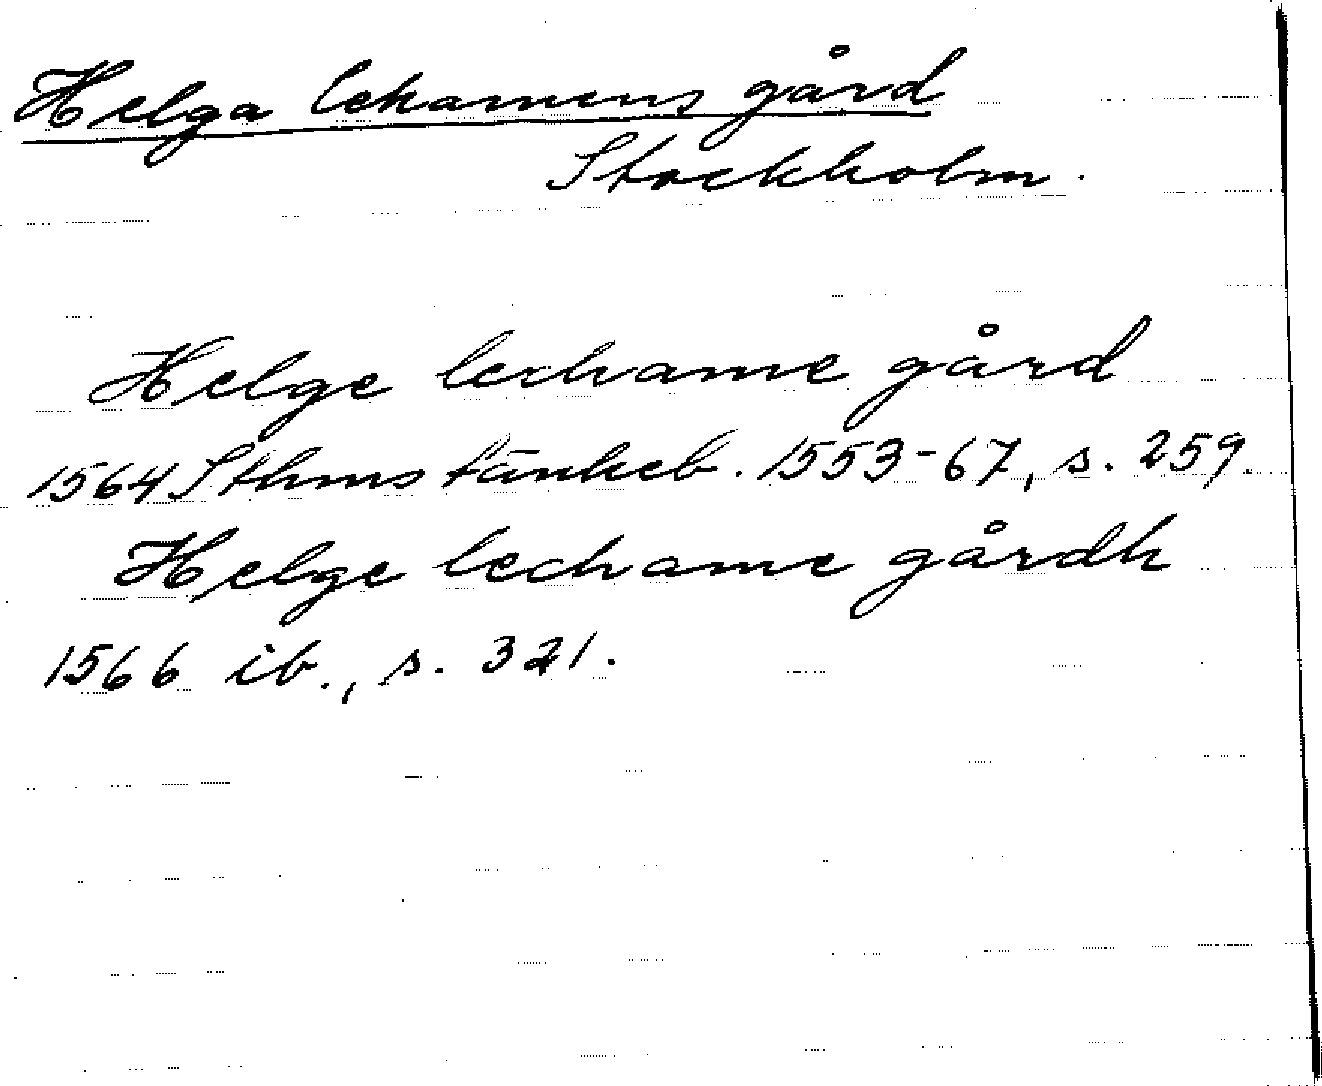 Helga lekamens gård
Stockholm.
Helge lechame gård
1564 Sthms tänkeb. 1553-67, s. 259.
Helge lechame gårdh
1566 ib., s. 321.